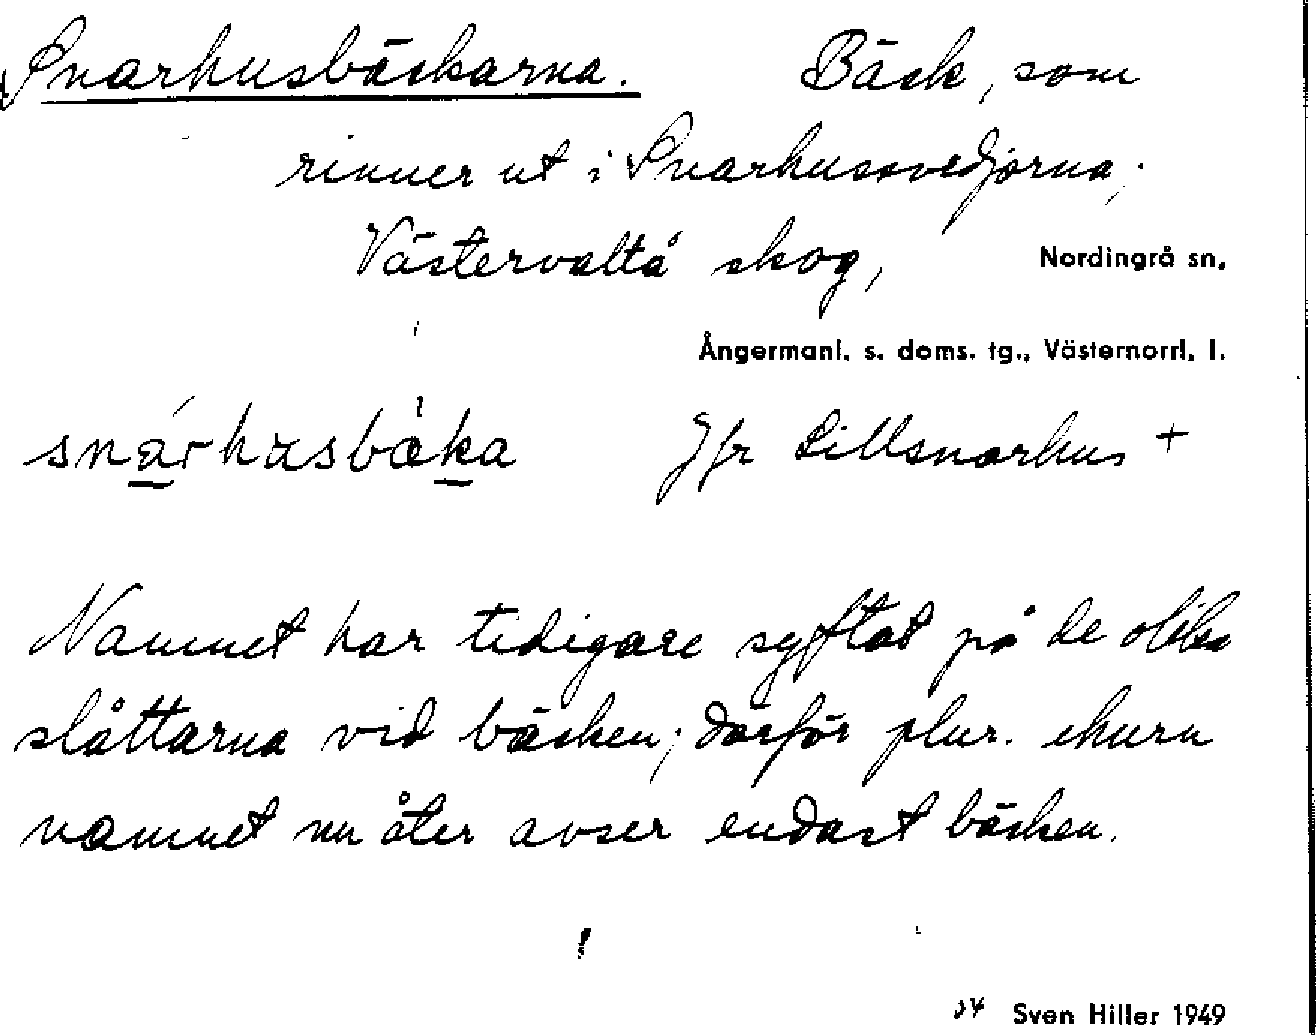 Snarhusbäckarna. Bäck, som
rinner ut i Snarhussvedjorna,
Västervaltå skog, Nordingrå sn.
Ångermanl. s. doms. tg., Västernorrl. l.
snárhusbäka Jfr Lillsnarhus +
Namnet har tidigare syftat på de olika
slåttarna vid bäcken; därför plur. ehuru
namnet nu åter avser endast bäcken.
Sven Hiller 1949